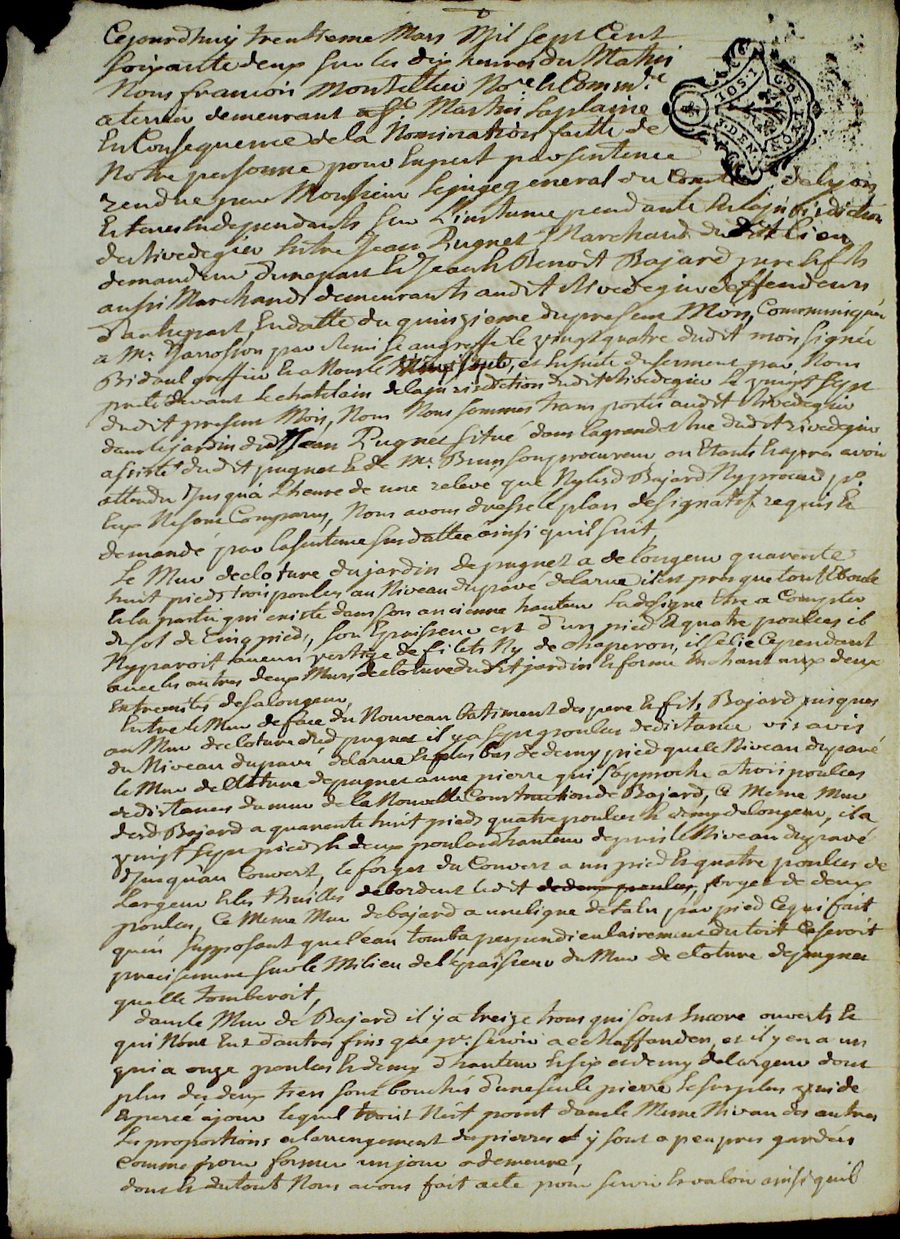 Cejourdhuy trentieme Mars Mil Sept Cent
soixante deux sur les dix heures du Matin
Nous francois Montellier No.re & Comm.re
a terrier demeurant a S.t Martin Laplaine
En Consequence de la Nomination faitte de
Notre personne pour Expert par sentence
rendue par Monsieur le juge general du Comté de Lyon
Et terres en dependants sur L'instance pendante en la jurisdiction
de Rivedegier Entre Jean Pugnet Marchand du dit Lieu
demandeur d'une part & Jean & Benoit Bajard pere & fils
aussi Marchands demeurants audit Rivedegier deffendeurs
d'autre part, En datte du quinzieme du present Mois, Communiquée
a M.e par le greffe le vingt quatre dudit mois signée
Bidaul greffier et ensuite du serment par Nous
preté devant le chatelain de la jurisdiction dudit Rivedegier le vingt sept
dudit present Mois, Nous Nous sommes transportés audit Rivedegier
dans le jardin dud. Jean Pugnet situé dans la grande Rue dudit rivedegier
assisté dudit pugnet & de M.e Brun son procureur ou Etants & apres avoir
attendu Jusqu'a l'heure de une relevé que Ny lesd Bajard Ny procur. p.r
Eux Ne sont Comparus, Nous avons dressé le plan designatif requis &
demandé par la sentence susdattée ainsi quil suit,
Le Mur de cloture du jardin de pugnet a de longeur quarente
huit pieds trois pouces au Niveau du pavé de la rue il est presque tout Eboulé
& la partie qui existe dans son ancienne hauteur La designe Etre a Compter
du sol de Cinq pieds, son Epaisseur est d'un pied & quatre poulces il
Ny paroit aucun vestige de filets Ny de chaperon, il se lie Cependant
avec les autres deux Murs de cloture dudit jardin & forme un chant aux deux
Extremités de sa longeur,
Entre le Mur de face du Nouveau batiment des pere & fils Bajard jusques
au Mur de cloture dud pugnet il y a sept poulces de distance vis a vis
du Niveau du pavé de la rue & plus bas de demy pied que le Niveau du pavé
le Mur de cloture de pugnet a une pierre qui s'approche a trois poulces
de distance du mur de la Nouvelle Construction de Bajard, Ce Meme Mur
dud Bajard a quarente huit pieds quatre poulces & demy de longeur, il a
vingt sept pieds & deux poulces d'hauteur depuis le Niveau du pavé
Jusqu'au Couvert, le forget du Couvert a un pied & quatre poulces de
Largeur & les Thuilles debordent ledit forget de deux
poulces, Ce Meme Mur de bajard a une ligne de talu par pied Ce qui fait
qu'en supposant que l'eau tomba perpendiculairement du toit Ce seroit
precisement sur le Milieu de l'epaisseur du Mur de cloture de pugnet
qu'elle tomberoit,
dans le Mur de Bajard il y a treize trous qui sont Encore ouverts &
qui N'ont Eut d'autres fins que p.r servir a echaffauder, et il y en a un
qui a onze poulces & demy d'hauteur & six et demy de largeur dont
plus des deux tiers sont bouchés d'une seule pierre le surplus vuide
& percé a jour lequel trou N'est point dans le Meme Niveau des autres
les proportions et l'arrangement des pierres y sont a peu pres gardées
comme pour former un jour a demeure,
dont & du tout Nous avons fait acte pour servir & valoir ainsi quil